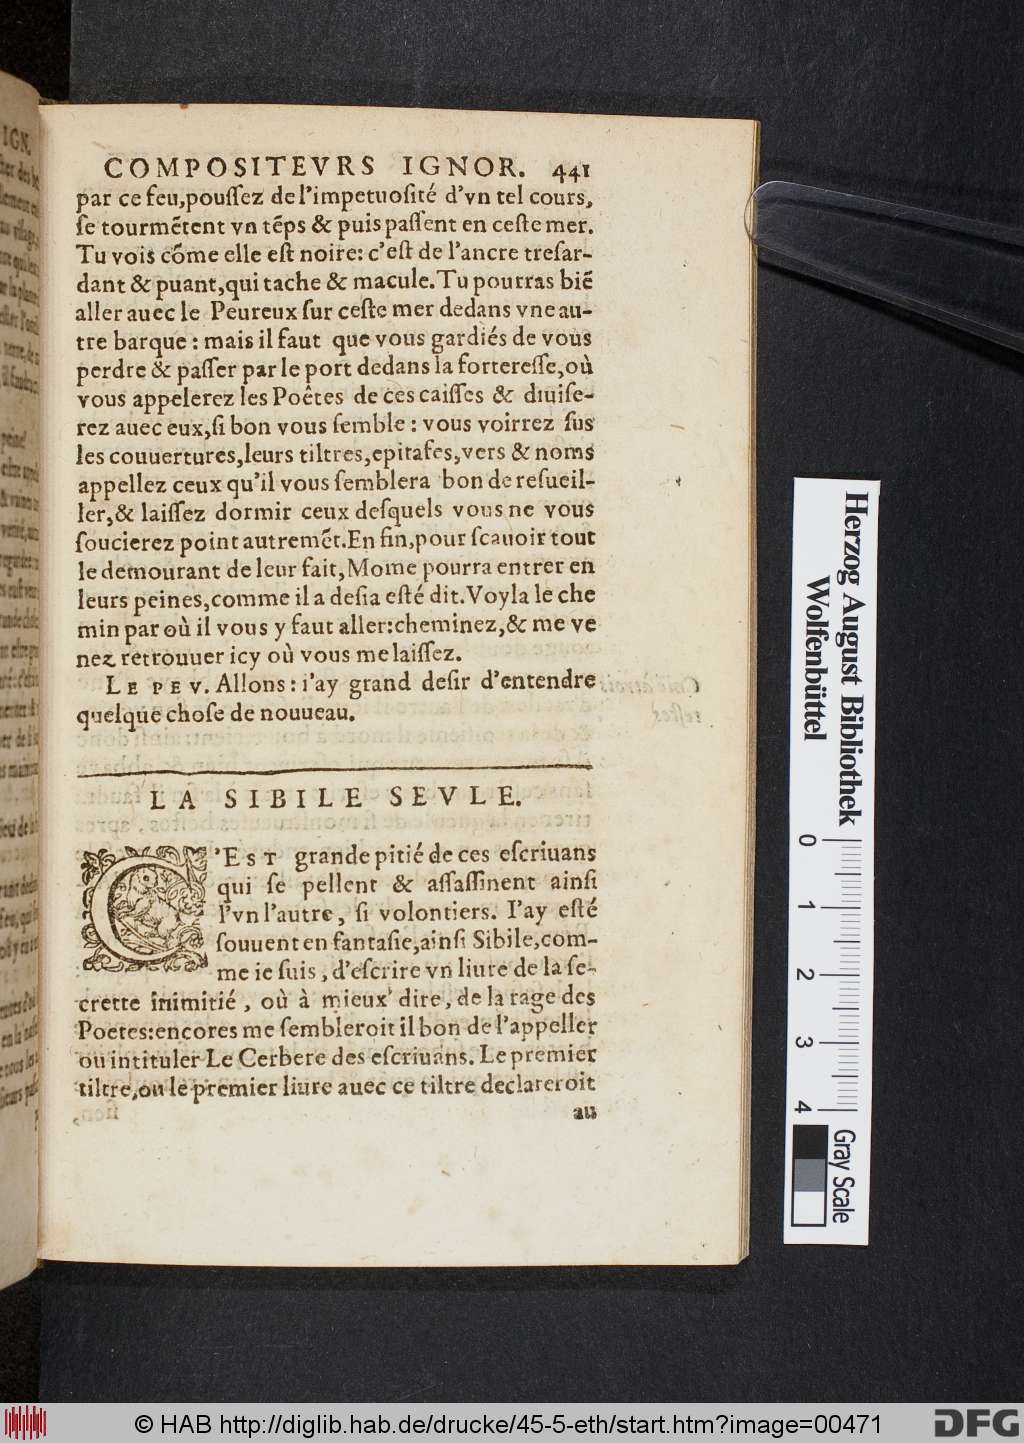 COMPOSITEVRS IGNOR. 441
par ce feu,pouſſez de l'impetuoſité d'vn tel cours,
ſe tourmẽtent vn tẽps & puis paſſent en ceſte mer.
Tu vois cõme elle eſt noire: c'eſt de l'ancre treſar-
dant & puant,qui tache & macule.Tu pourras biẽ
aller auec le Peureux ſur ceſte mer dedans vne au-
tre barque : mais il faut que vous gardiés de vous
perdre & paſſer par le port dedans la fortereſſe,où
vous appelerez les Poëtes de ces caiſſes & diuiſe-
rez auec eux,ſi bon vous ſemble : vous voirrez ſus
les couuertures,leurs tiltres,epitafes,vers & noms
appellez ceux qu'il vous ſemblera bon de reſueil-
ler,& laiſſez dormir ceux deſquels vous ne vous
ſoucierez point autremẽt.En fin,pour ſcauoir tout
le demourant de leur fait,Mome pourra entrer en
leurs peines,comme il a deſia eſté dit.Voyla le che
min par où il vous y faut aller:cheminez,& me ve
nez retrouuer icy où vous me laiſſez.
LE PEV. Allons : i'ay grand deſir d'entendre
quelque choſe de nouueau.
LA SIBILE SEVLE.
C'EST grande pitié de ces eſcriuans
qui ſe pellent & aſſaſſinent ainſi
l'vn l'autre, ſi volontiers. I'ay eſté
ſouuent en fantaſie,ainſi Sibile,com-
me ie ſuis, d'eſcrire vn liure de la ſe-
crette inimitié, où à mieux dire, de la rage des
Poetes:encores me ſembleroit il bon de l'appeller
ou intituler Le Cerbere des eſcriuãns. Le premier
tiltre,ou le premier liure auec ce tiltre declareroit
au
Herzog August Bibliothek
Wolfenbüttel
0 1 2 3 4
Gray Scale
© HAB http://diglib.hab.de/drucke/45-5-eth/start.htm?image=00471
DFG